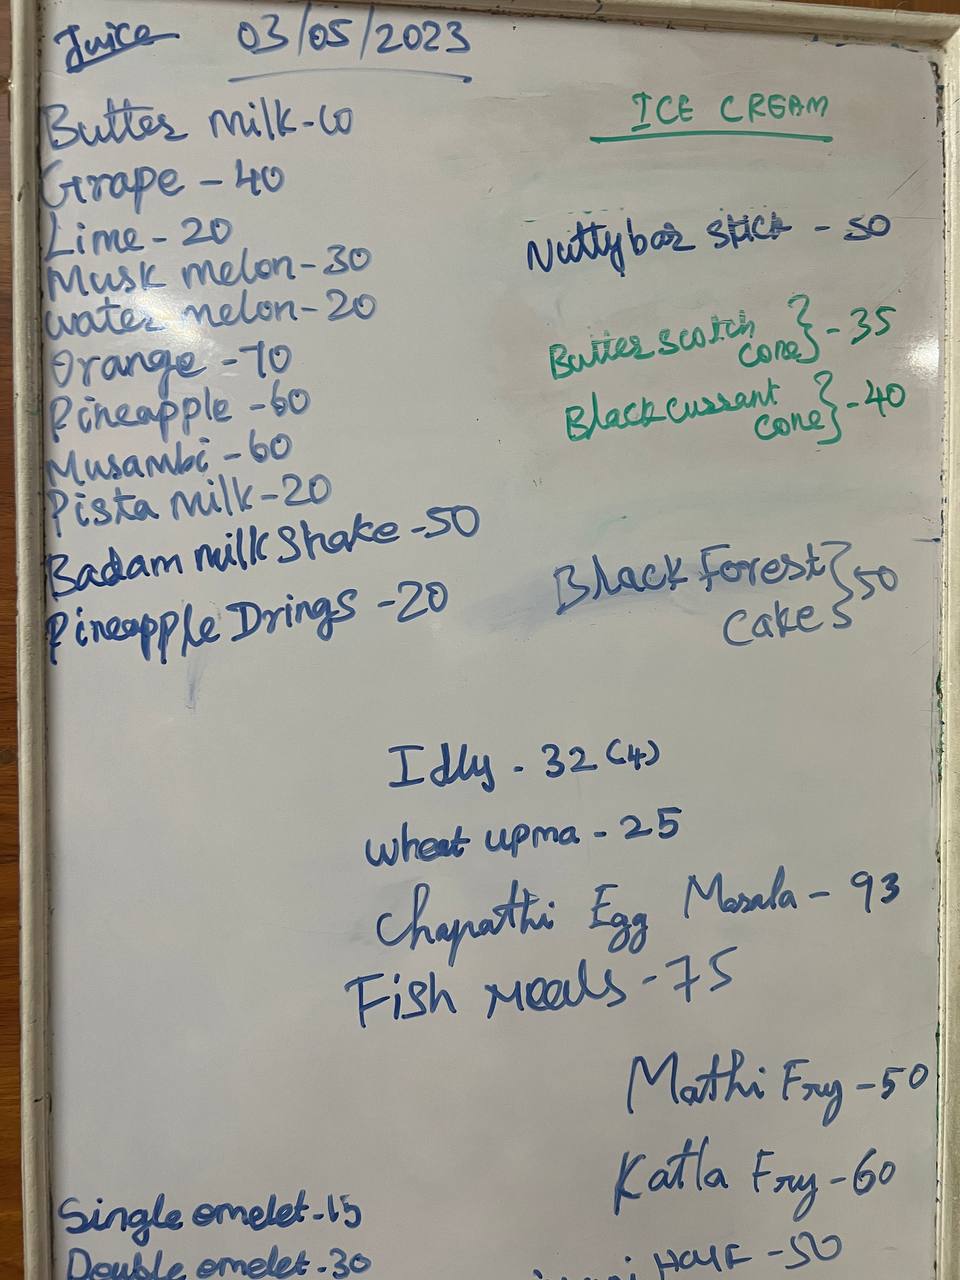 Juice 03/05/2023
Butter milk-10
Grape - 40
Lime - 20
Musk melon - 30
water melon - 20
Orange - 70
Pineapple - 60
Musambi - 60
Pista milk - 20
Badam milk Shake - 50
Pineapple Drings - 20
ICE CREAM
Nutty bar stick - 50
Butter scotch
cone } - 35
Black currant
cone } - 40
Black Forest
Cake } 50
Idly - 32 (4)
wheat upma - 25
Chapathi Egg Masala - 93
Fish meals - 75
Mathi Fry - 50
Katla Fry - 60
Half - 50
Single omelet - 15
Double omelet - 30